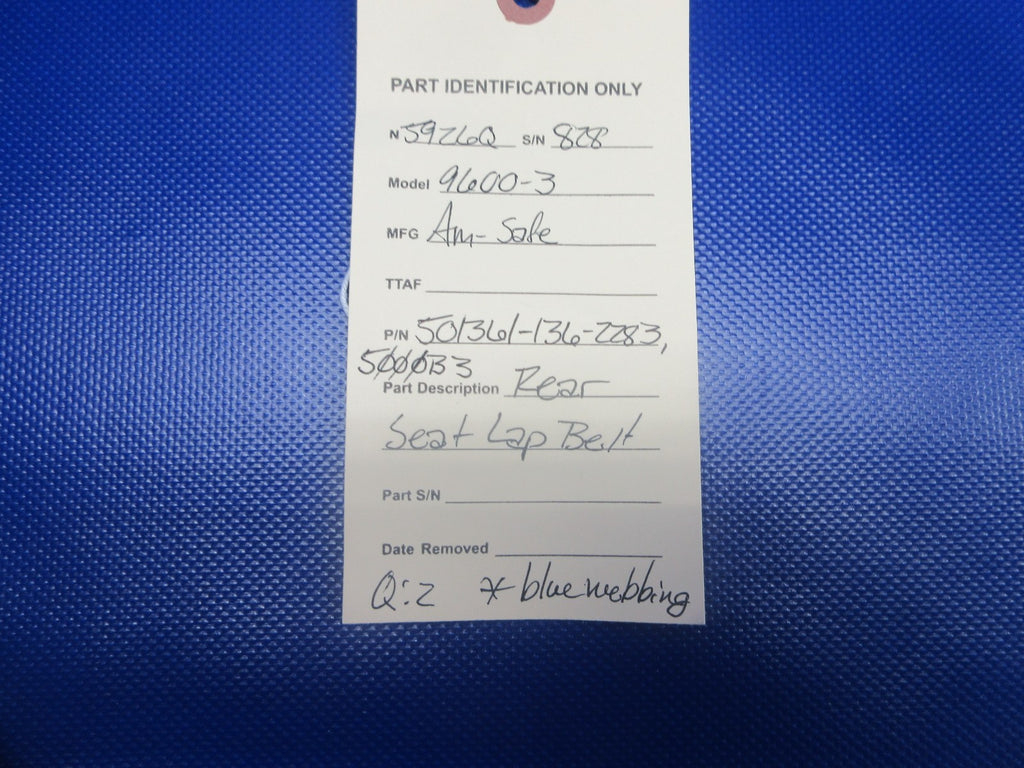 PART IDENTIFICATION ONLY
N 5926Q S/N 828
Model 9600-3
MFG Am-Safe
TTAF
P/N 501361-136-2283,
5000B3
Part Description Rear
Seat Lap Belt
Part S/N
Date Removed
Q:2 *blue webbing